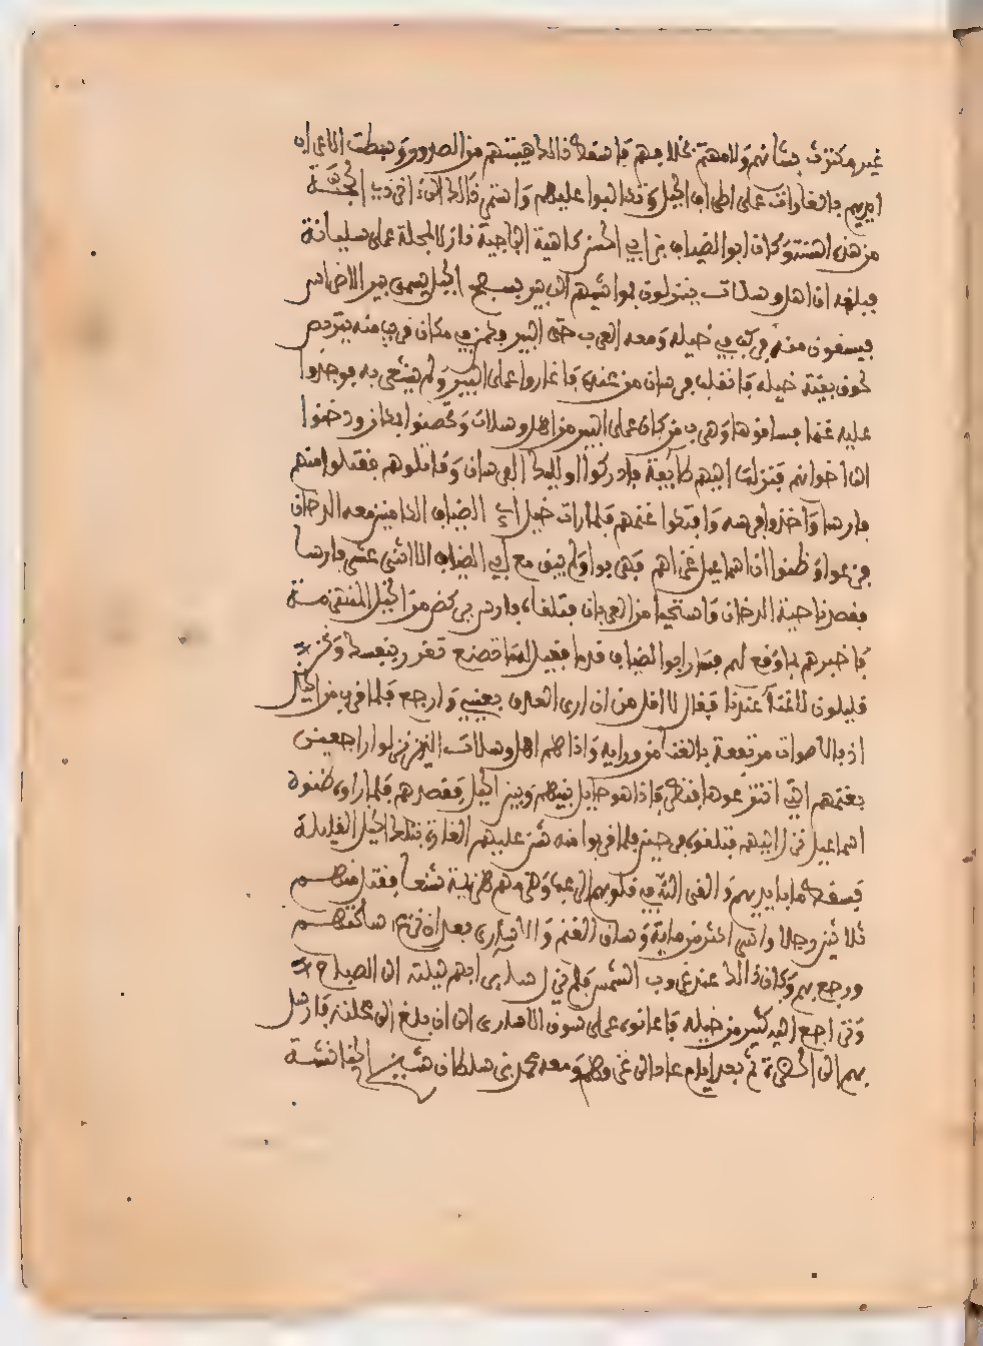 غير مكترث بشانهم ولا مهتم بخلافهم فاسقط ذالك هيبتهم من الصدور وبسطت الاعراب
ايديهم بالغارات على اطراف الجبل وتكالبوا عليهم واشتهر ذالك في الجهة
من هذه السنة وكان ابو الضياف بن ابي الحسن كاهية الباجية نازلا بالمحلة على سليانة
فبلغه ان اهل وسلات ينزلون بمواشيهم الى بير بسفح الجبل يسمى بير الاضراس
فيسقون منه فركب في خيله ومعه العرب حتى البير وكمن في مكان قريب منه يتربص
لحوق بقية خيله فانفلت فرسان من عنده فاغاروا على البير ولم يشعر به فوجدوا
عليه غنما فساقوها وهرب من كان على البير من اهل وسلات وتحصنوا
الى اخوانهم فنزلت اليهم طايفة فادركوا اوليك الفرسان وقاتلوهم فقتلوا منهم
فارسا واخذوا فرسه وافتكوا غنمهم فلما رات خيل ابي الضياف الكامنين معه الدخان
فزعوا وظنوا ان اسماعيل غزاهم فهربوا ولم يبق مع ابي الضياف الا اثنى عشر فارسا
فقصد ناحية الدخان فاستحيا من الفرار فتلقاه فارس يركض من الخيل المنهزمة
فاخبرهم بما وقع لهم فسار ابو الضياف قدما فقيل له ما تصنع تغرر بنفسك ونحن
قليلون لا غنا عندنا فقال لا اقل من ان ارى العدو بعيني وارجع فلما قرب من الجبل
اذ بالاصوات مرتفعة بالغنا من ورايه واذا هم اهل وسلات الذين نزلوا راجعين
بغنمهم التي انتزعوها فنظر فاذا هو حايل بينهم وبين الجبل فقصدهم فلما راوه ظنوه
اسماعيل نزل اليهم فتلقوه فرحين فلما قربوا منه شن عليهم الغارة بتلك الخيل القليلة
فسقط ما بايديهم والقى الله في قلوبهم الرعب وهزمهم هزيمة شنعا فقتل منهم
ثلاثين رجلا واسر اكثر من ماية وساق الغنم والاسارى بعد ان ساكنهم
ورجع بهم وكان ذالك عند غروب الشمس فلم يزل ساير بهم ليلته الى الصباح
وتراجع اليه كثير من خيله فاعانوه على سوق الاسارى الى ان بلغ الى محلته فارسل
بهم الى الحضرة ثم بعد ايام عاد الى غزوهم ومعه محمد بن سلطان شيخ الخنانشة